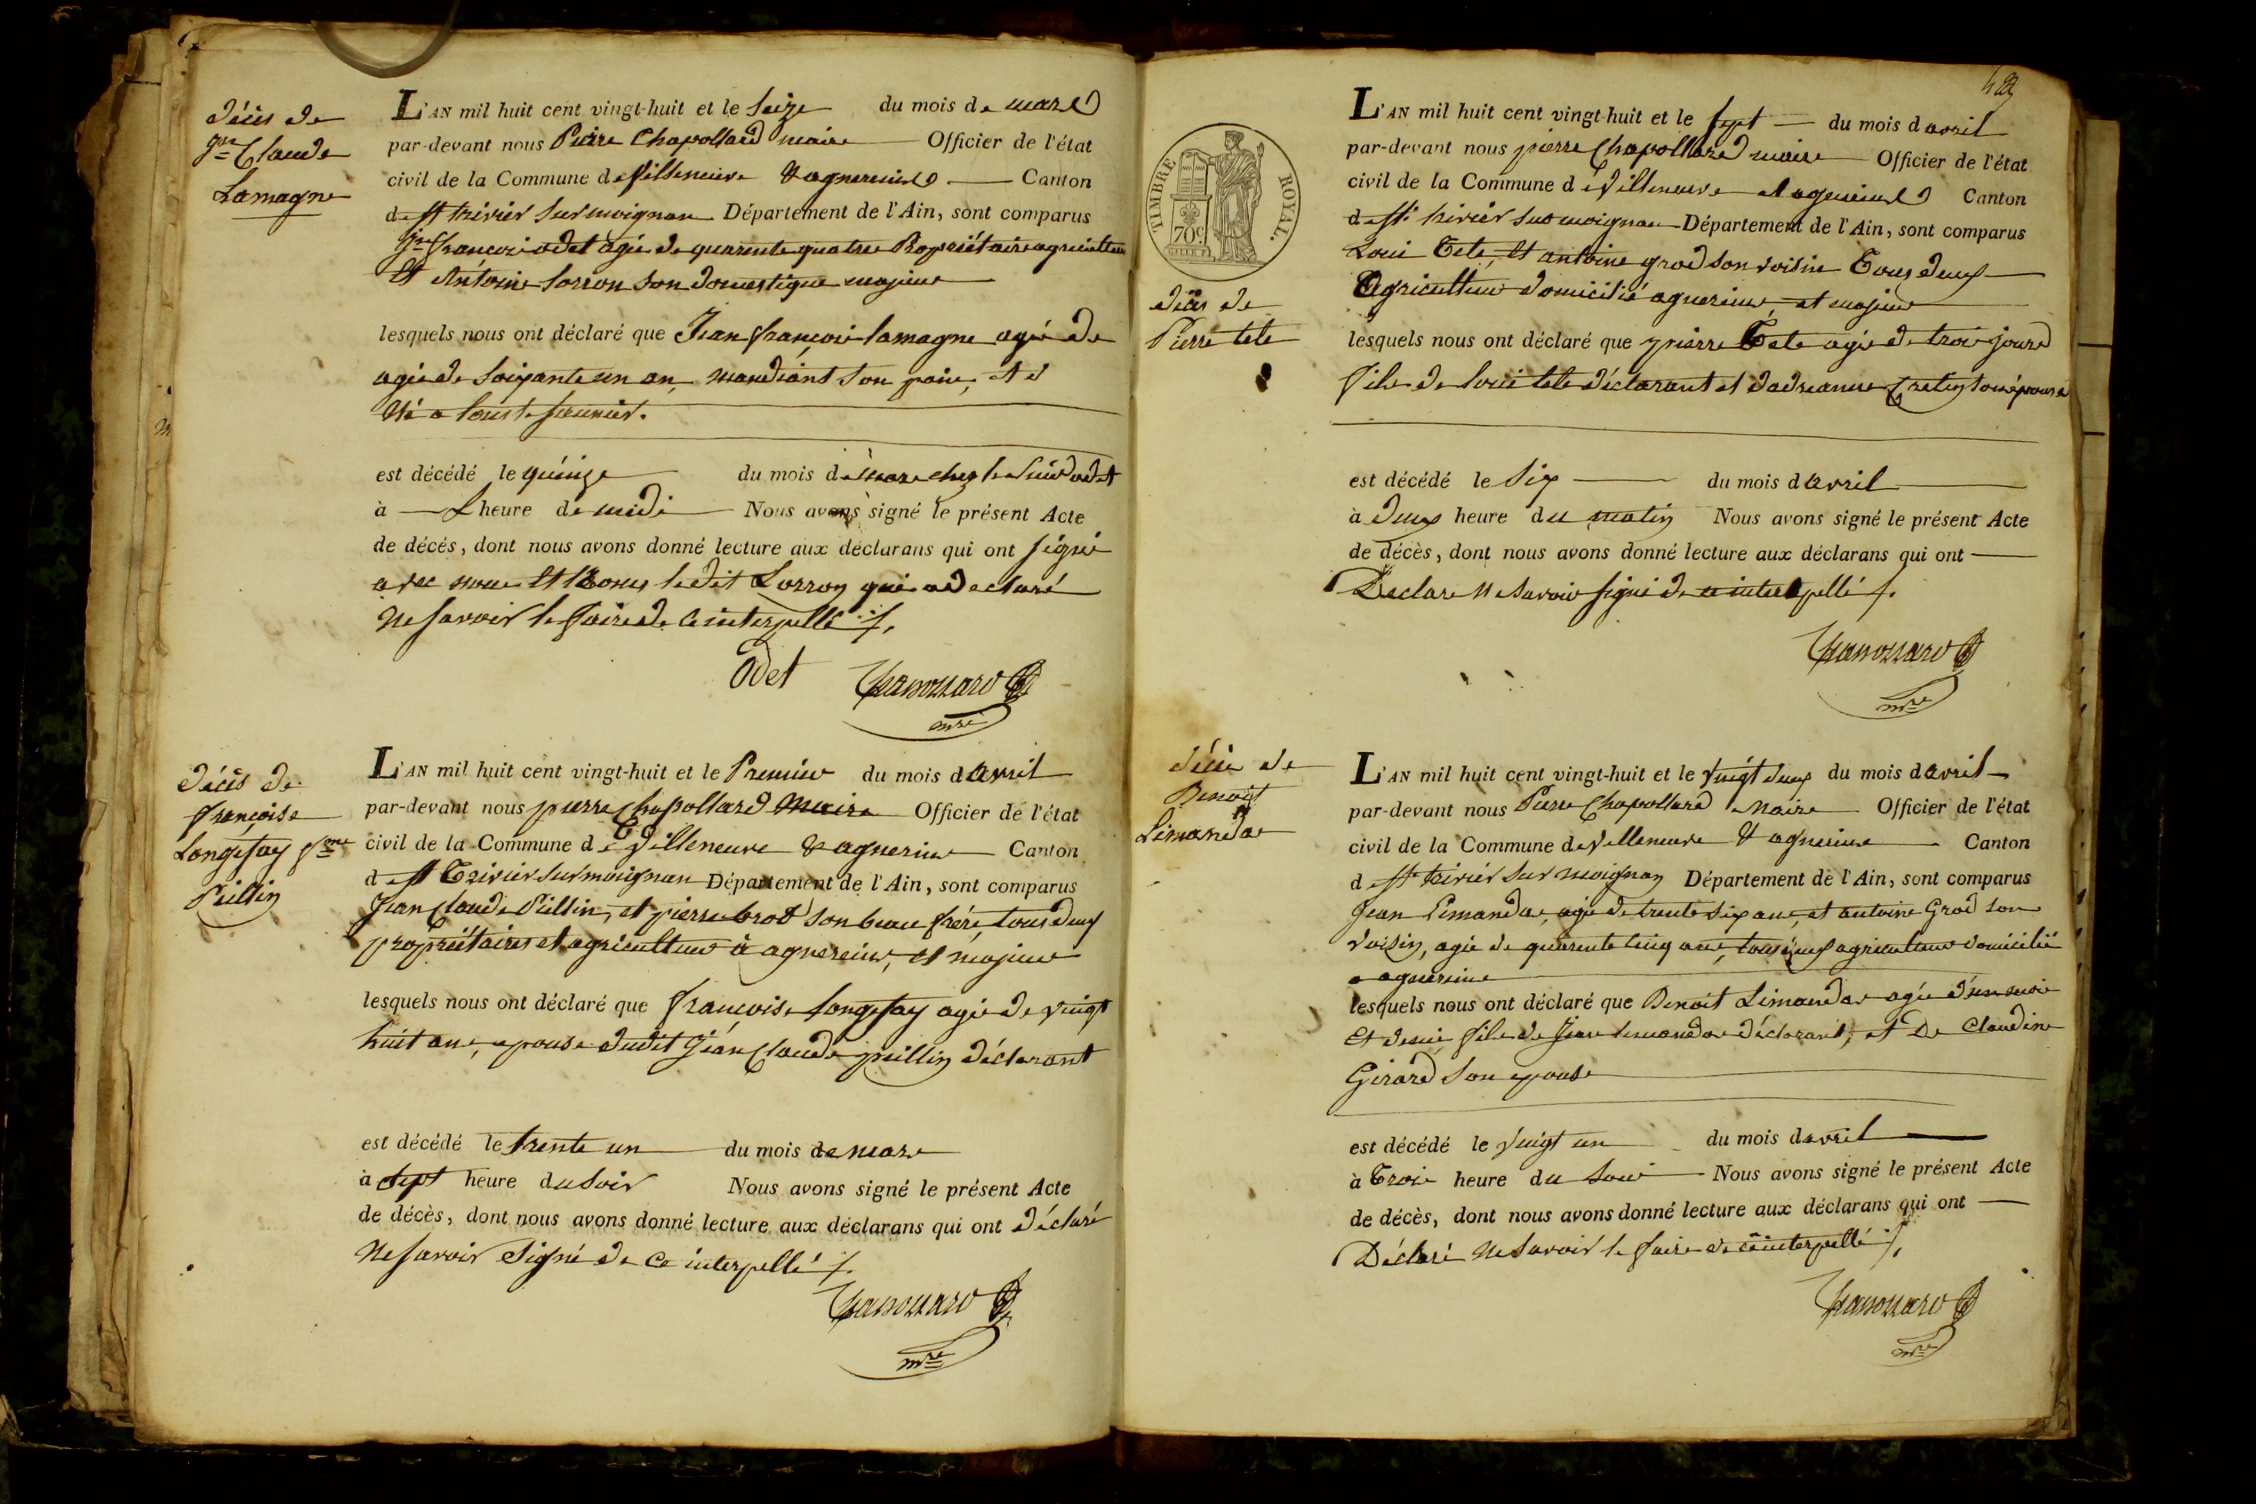 décès de
Jn Claude
Lamagne
L'AN mil huit cent vingt-huit et le seize du mois de mars
par-devant nous Pierre Chapollard maire Officier de l'état
civil de la Commune de Villeneuve & agnereins Canton
de St trivier sur moignan Département de l'Ain, sont comparus
Jn françois odet agé de quarente quatre Propriétaire agriculteur
Et Antoine Lorron son domestique majeur
lesquels nous ont déclaré que Jean françois lamagne agé de
agé de soixante un an, mandiant son pain, et
Né a
est décédé le quinze du mois de mars chez le sieur odet
à L heure de midi Nous avons signé le présent Acte
de décès, dont nous avons donné lecture aux déclarans qui ont signé
avec nous Et le dit Lorron qui a declaré
Ne savoir le faire de ce interpellé ./.
Odet Chapollard
mre
décès de
françoise
Longefay fme
Pillin
L'AN mil huit cent vingt-huit et le Premier du mois d avril
par-devant nous pierre Chapollard Maire Officier de l'état
civil de la Commune de Villeneuve & agnereins Canton
de St Trivier sur moignan Département de l'Ain, sont comparus
Jean Claude Pillin, et pierre brot son beau frère, tous deux
propriétaires et agriculteur à agnereins, et majeur
lesquels nous ont déclaré que françoise Longefay agée de vingt
huit ans, epouse dudit Jean Claude pillin déclarant
est décédé le trente un du mois de mars
à sept heure du soir Nous avons signé le présent Acte
de décès, dont nous avons donné lecture aux déclarans qui ont déclaré
Ne savoir signé de ce interpellé ./.
Chapollard
mre
TIMBRE ROYAL.
70c.
décès de
Pierre tete
L'AN mil huit cent vingt-huit et le sept du mois d avril
par-devant nous pierre Chapollard maire Officier de l'état
civil de la Commune de Villeneuve et agnereins Canton
de St trivier sur moignan Département de l'Ain, sont comparus
Loui Tete, Et antoine grod son voisin Tous deux
Agriculteur domicilié agnereins, et majeur
lesquels nous ont déclaré que pierre Tete agé de trois jours
fils de Loui tete déclarant et dadrianne Cretin son épouse
est décédé le six du mois d avril
à deux heure du matin Nous avons signé le présent Acte
de décès, dont nous avons donné lecture aux déclarans qui ont
Declaré Ne savoir signé de ce interpellé ./.
Chapollard
mre
décès de
Benoit
Limandas
L'AN mil huit cent vingt-huit et le vingt deux du mois d avril
par-devant nous Pierre Chapollard maire Officier de l'état
civil de la Commune de Villeneuve & agnereins Canton
de St trivier sur moignan Département de l'Ain, sont comparus
Jean Limandas, agé de trente six ans, et antoine Grod son
voisin, agé de quarente cinq ans, tous deux agriculteur domicilié
a agnereins
lesquels nous ont déclaré que Benoit Limandas agé d'un mois
Et demi fils de Jean limandas déclarant, et De Claudine
Girard son epouse
est décédé le vingt un du mois d avril
à Trois heure du soir Nous avons signé le présent Acte
de décès, dont nous avons donné lecture aux déclarans qui ont
Déclaré Ne savoir le faire de ce interpellé ./.
Chapollard
mre